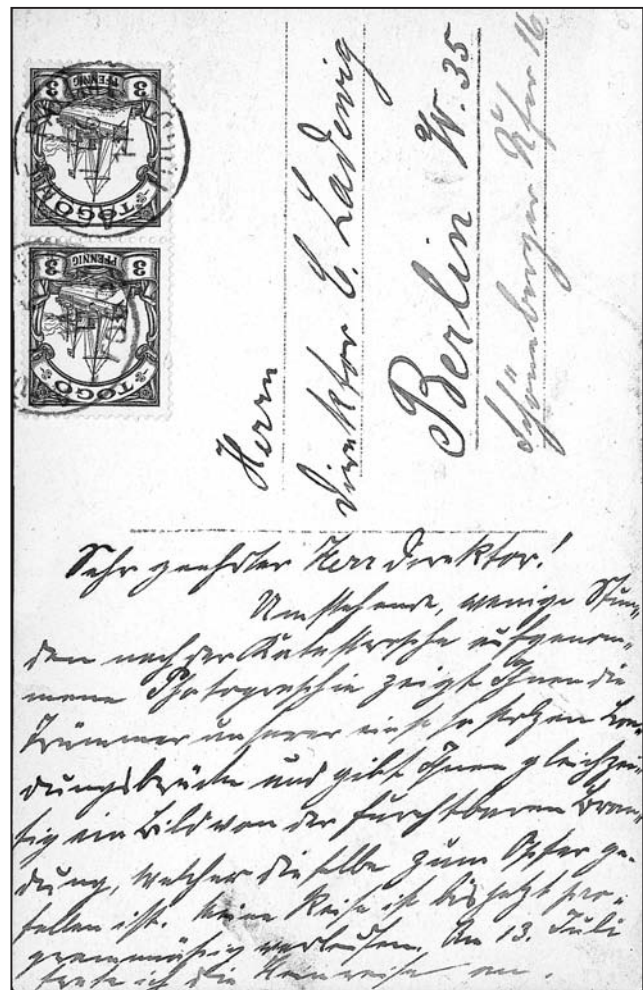 3 PFENNIG 3
TOGO
3 PFENNIG 3
TOGO
Herrn
Direktor C. Ladewig
Berlin W. 35
Schöneberger Ufer 16
Sehr geehrter Herr Direktor!
Umstehende, wenige Stun-
den nach der Katastrophe aufgenom-
mene Photographie zeigt Ihnen die
Trümmer unserer einst so stolzen Lan-
dungsbrücke und gibt Ihnen gleichzei-
tig ein Bild von der furchtbaren Bran-
dung, welcher dieselbe zum Opfer ge-
fallen ist. Meine Reise ist bis jetzt pro-
grammäßig verlaufen. Am 13. Juli
trete ich die Heimreise an.